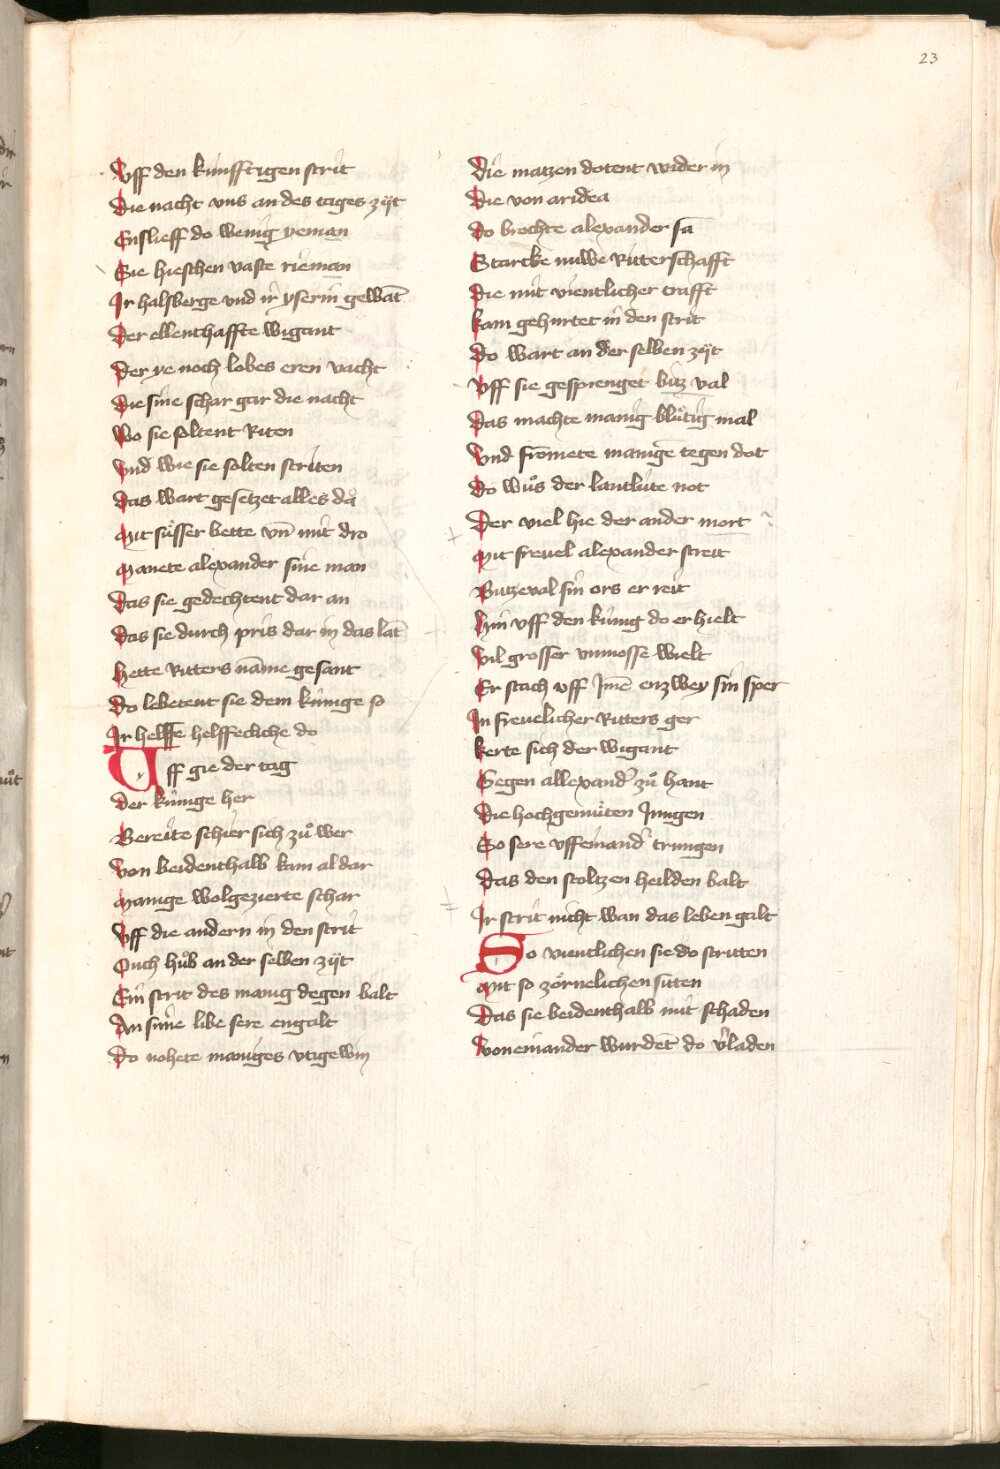 23
Uff den kúnfftigen strit
Die nacht vns an des tages zÿt
Enslieff do wenig yeman
Sie hieschen vaste rieman
Ir halsberge vnd ir yserin gewāt
Der ellenthaffte wigant
Der ye noch lobes eren vacht
Die sine schar gar die nacht
Wo sie soltent Riten
Vnd wie sie solten striten
Das wart gesetzet alles da
Mit suͤsser bette vn̄ mit dro
Manete alexander sine man
Das sie gedechtent dar an
Das sie durch pris dar in das lāt
Hette Ritters name gesant
Do lebetent sie dem kúnige so
Ir helffe helffecliche do
Uff gie der tag
Der kúnige her
Bereite schier sich zuͦ wer
Von beidenthalb kam al dar
Manige wolgezierte schar
Uff die andern in den strit
Ouch huͦb an der selben zÿt
Ein strit des manig degen balt
An sime libe sere engalt
Do nohete maniges vtigewin
Die matzen dotent wider in
Die von aridea
Do brochte alexander sā
Starcke nuwe Ritterschafft
Die mit vientlicher crafft
Kam gehurtet in den strit
Do wart an der selben zÿt
Uff sie gesprenget butz val
Das machte manig bluͦtig mal
Vnd fromete manigē tegen dot
Do wuͦs der lantlúte not
Der viel hie der ander mort
Mit frevel alexander streit
Butzeval sin ors er reit
Hin uff den kúnig do er hielt
Vil grosser vnmosse wielt
Er stach uff Jme enzwey sin sper
In frevelicher Ritters ger
Kerte sich der wigant
Gegen allexand' zuͦ hant
Die hochgemuͤten Jungen
So sere uffeinand' trungen
Das den stoltzen heilden balt
Ir strit nicht wan das leben galt
So vientlichen sie do stritten
Mit so zoͤrnelichen sitten
Das sie beidenthalb mit schaden
Von einander wurdēt do v'laden